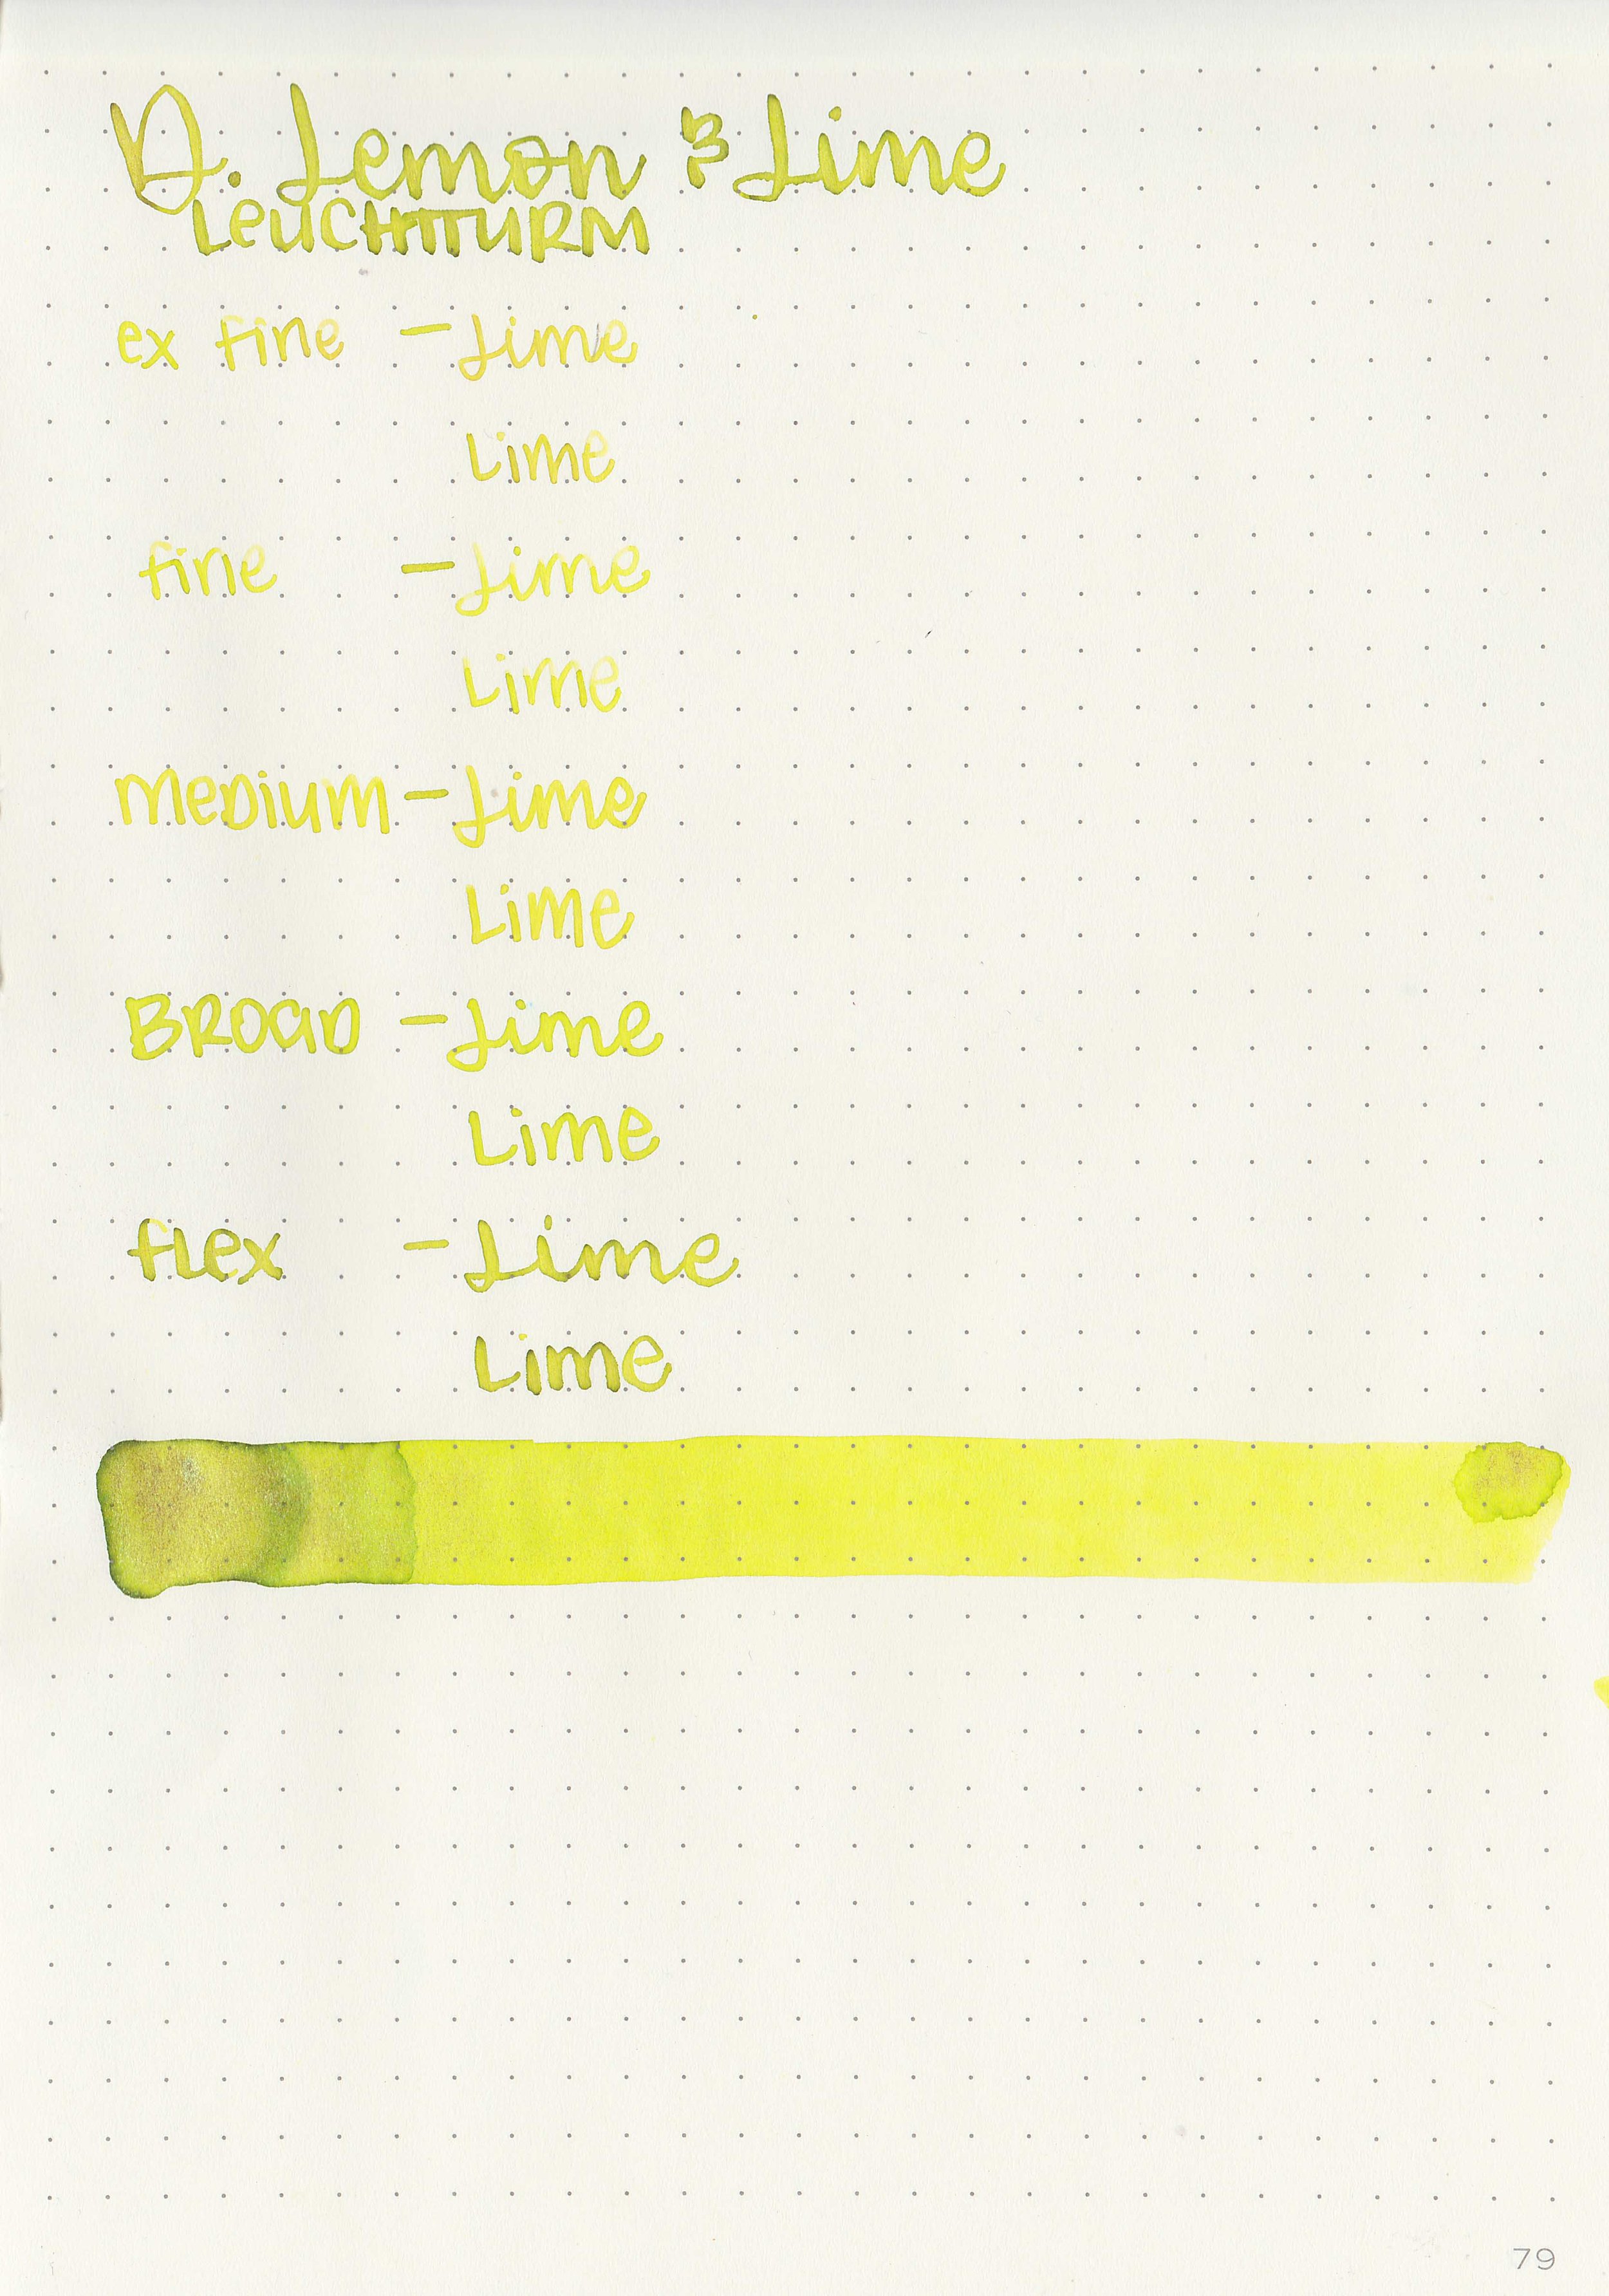 D. Lemon & Lime
LeUCHTTURM
ex fine - Lime
Lime
fine - Lime
Lime
MeDium - Lime
Lime
BROaD - Lime
Lime
flex - Lime
Lime
79